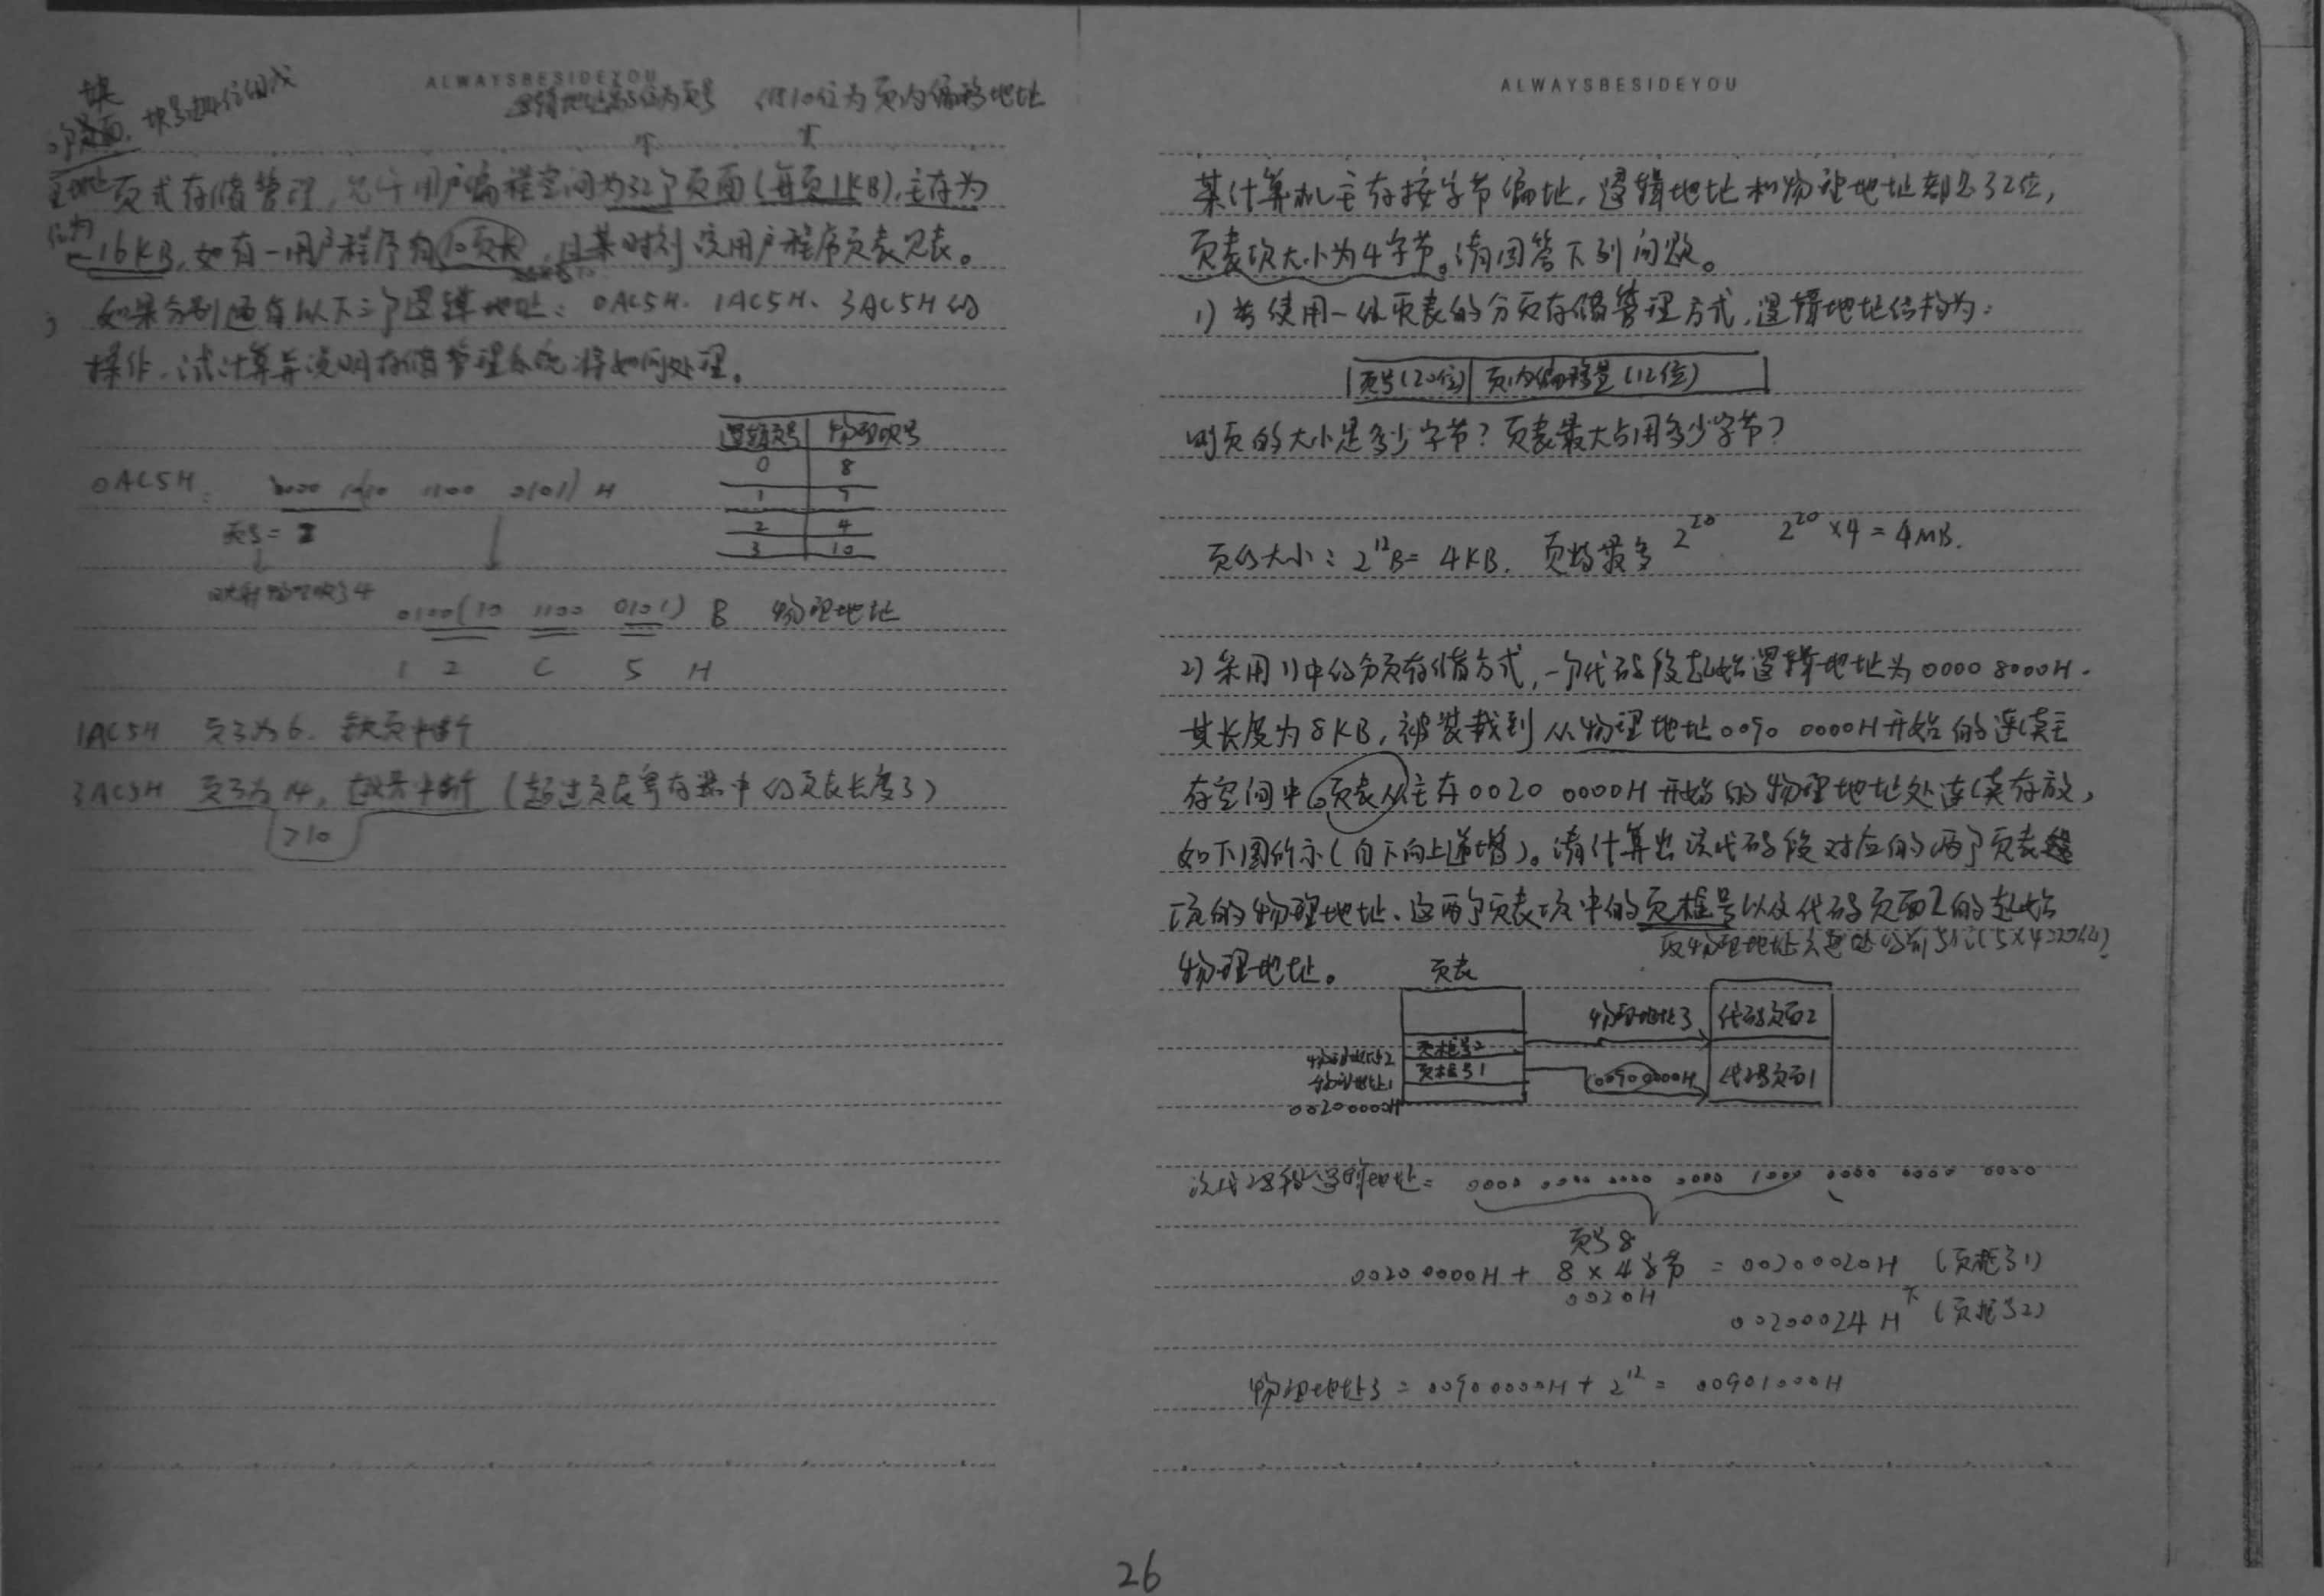 ALWAYSBESIDEYOU
逻辑地址高5位为页号 低10位为页内偏移地址
块
块号由4位组成
页式存储管理,允许用户编程空间为32个页面(每页1KB),主存为
16KB,如有一用户程序有10页长,且某时刻该用户程序页表见表。
如果分别遇有以下三个逻辑地址:0AC5H、1AC5H、3AC5H的
操作,试计算并说明存储管理系统将如何处理。
逻辑页号 物理块号
0 8
1 7
2 4
3 10
0AC5H: 0000 1010 1100 0101 H
页号=2
映射物理块号4
0100(10 1100 0101) B 物理地址
1 2 C 5 H
1AC5H 页号为6. 缺页中断
3AC5H 页号为14, 越界中断 (超过页表寄存器中的页表长度了)
>10
ALWAYSBESIDEYOU
某计算机主存按字节编址,逻辑地址和物理地址都是32位,
页表项大小为4字节。请回答下列问题。
1) 若使用一级页表的分页存储管理方式,逻辑地址结构为:
页号(20位) 页内偏移量(12位)
则页的大小是多少字节?页表最大占用多少字节?
页的大小:2^12B=4KB. 页表最多 2^20 2^20×4=4MB.
2) 采用1)中的分页存储方式,一个代码段起始逻辑地址为0000 8000H.
其长度为8KB,被装载到从物理地址0090 0000H开始的连续主
存空间中。页表从主存0020 0000H开始的物理地址处连续存放,
如下图所示(自下向上递增)。请计算出该代码段对应的两个页表
项的物理地址、这两个页表项中的页框号以及代码页面2的起始
物理地址。
页表
物理地址3 代码页面2
物理地址2 页框号2
物理地址1 页框号1 00900000H 代码页面1
00200000H
该代码段逻辑地址= 0000 0000 0000 0000 1000 0000 0000 0000
页号8
0020 0000H + 8×4字节 = 00200020H (页框号1)
0020H
00200024H (页框号2)
物理地址3 = 00900000H + 2^12 = 00901000H
26